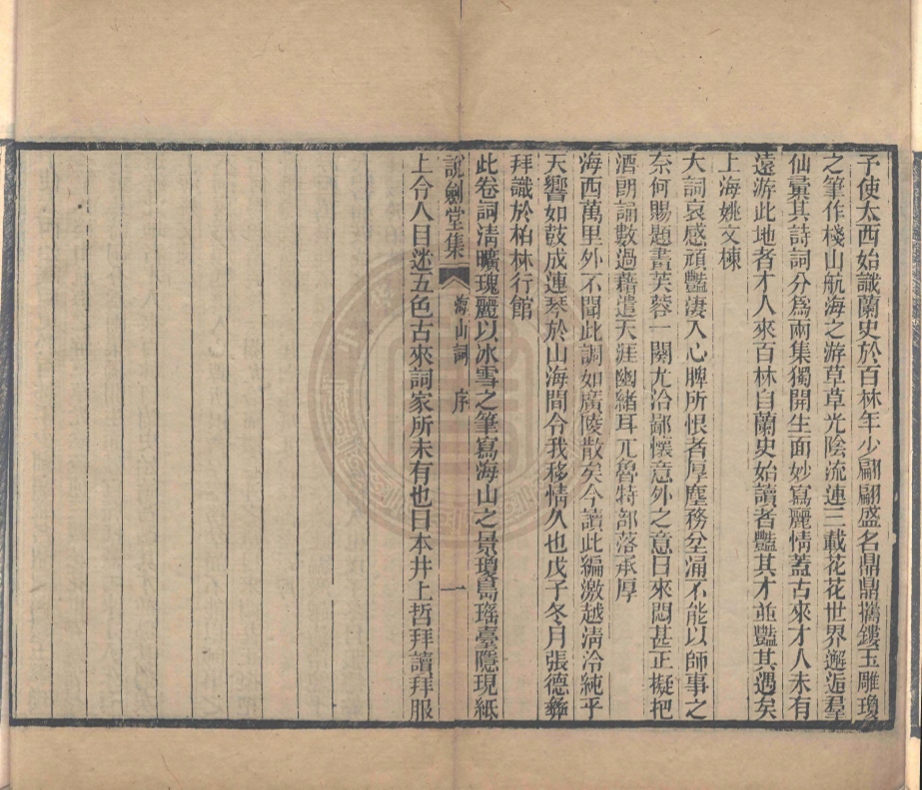 子使太西始識蘭史於百林年少翩翩盛名鼎鼎攜鏤玉雕瓊
之筆作棧山航海之游草草光陰流連三載花花世界邂逅羣
仙彙其詩詞分爲兩集獨開生面妙寫麗情蓋古來才人未有
遠游此地者才人來百林自蘭史始讀者豔其才並豔其遇矣
上海姚文棟
大詞哀感頑豔淒入心脾所恨者厚塵務坌涌不能以師事之
奈何賜題畫芙蓉一闋尤洽鄙懷意外之意日來悶甚正擬把
酒朗誦數過藉遣天涯幽緒耳兀魯特部落承厚
海西萬里外不聞此調如廣陵散矣今讀此編激越清泠純乎
天響如鼓成連琴於山海間令我移情久也戊子冬月張德彝
拜識於柏林行館
此卷詞清曠瑰麗以冰雪之筆寫海山之景瓊島瑤臺隱現紙
說劍堂集 海山詞 序 一
上令人目迷五色古來詞家所未有也日本井上哲拜讀拜服